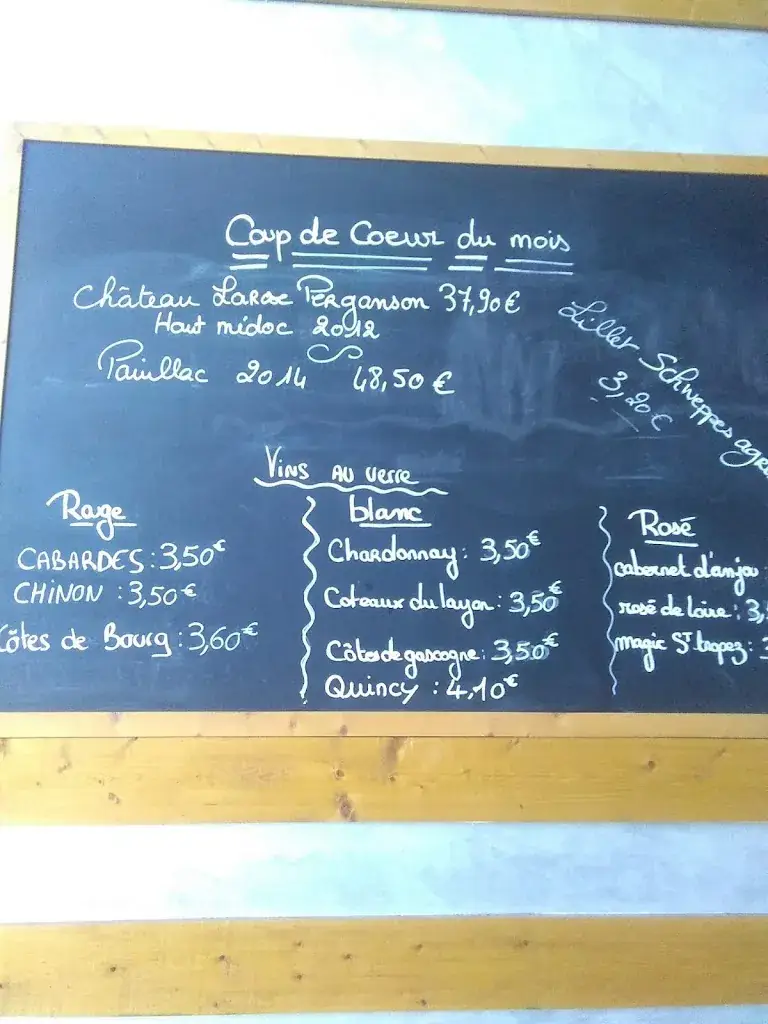 Coup de Coeur du mois
Château Larose Perganson 37,90€
Haut médoc 2012
Pauillac 2014 48,50€
Lillet Schweppes agru
3,20€
Vins au verre
Rouge
CABARDES : 3,50€
CHINON : 3,50€
Côtes de Bourg : 3,60€
blanc
Chardonnay : 3,50€
Coteaux du layon : 3,50€
Côtes de gascogne : 3,50€
Quincy : 4,10€
Rosé
cabernet d'anjou :
rosé de loire : 3,
magic St tropez : 3